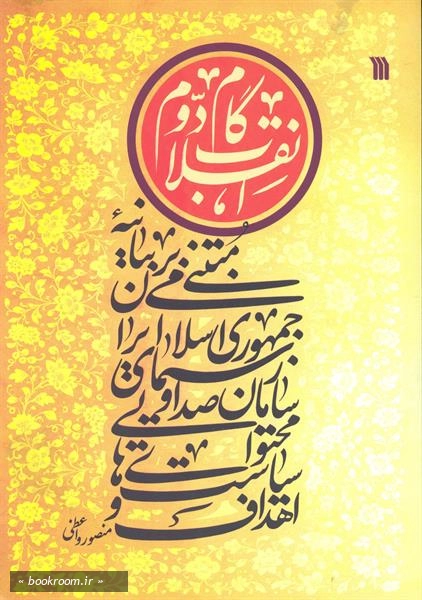 اهداف و
سیاست‌های
محتوایی
سازمان صدا و سیمای
جمهوری اسلامی ایران
مبتنی بر بیانیهٔ
گام دوم
انقلاب
منصور واعظی
« bookroom.ir »